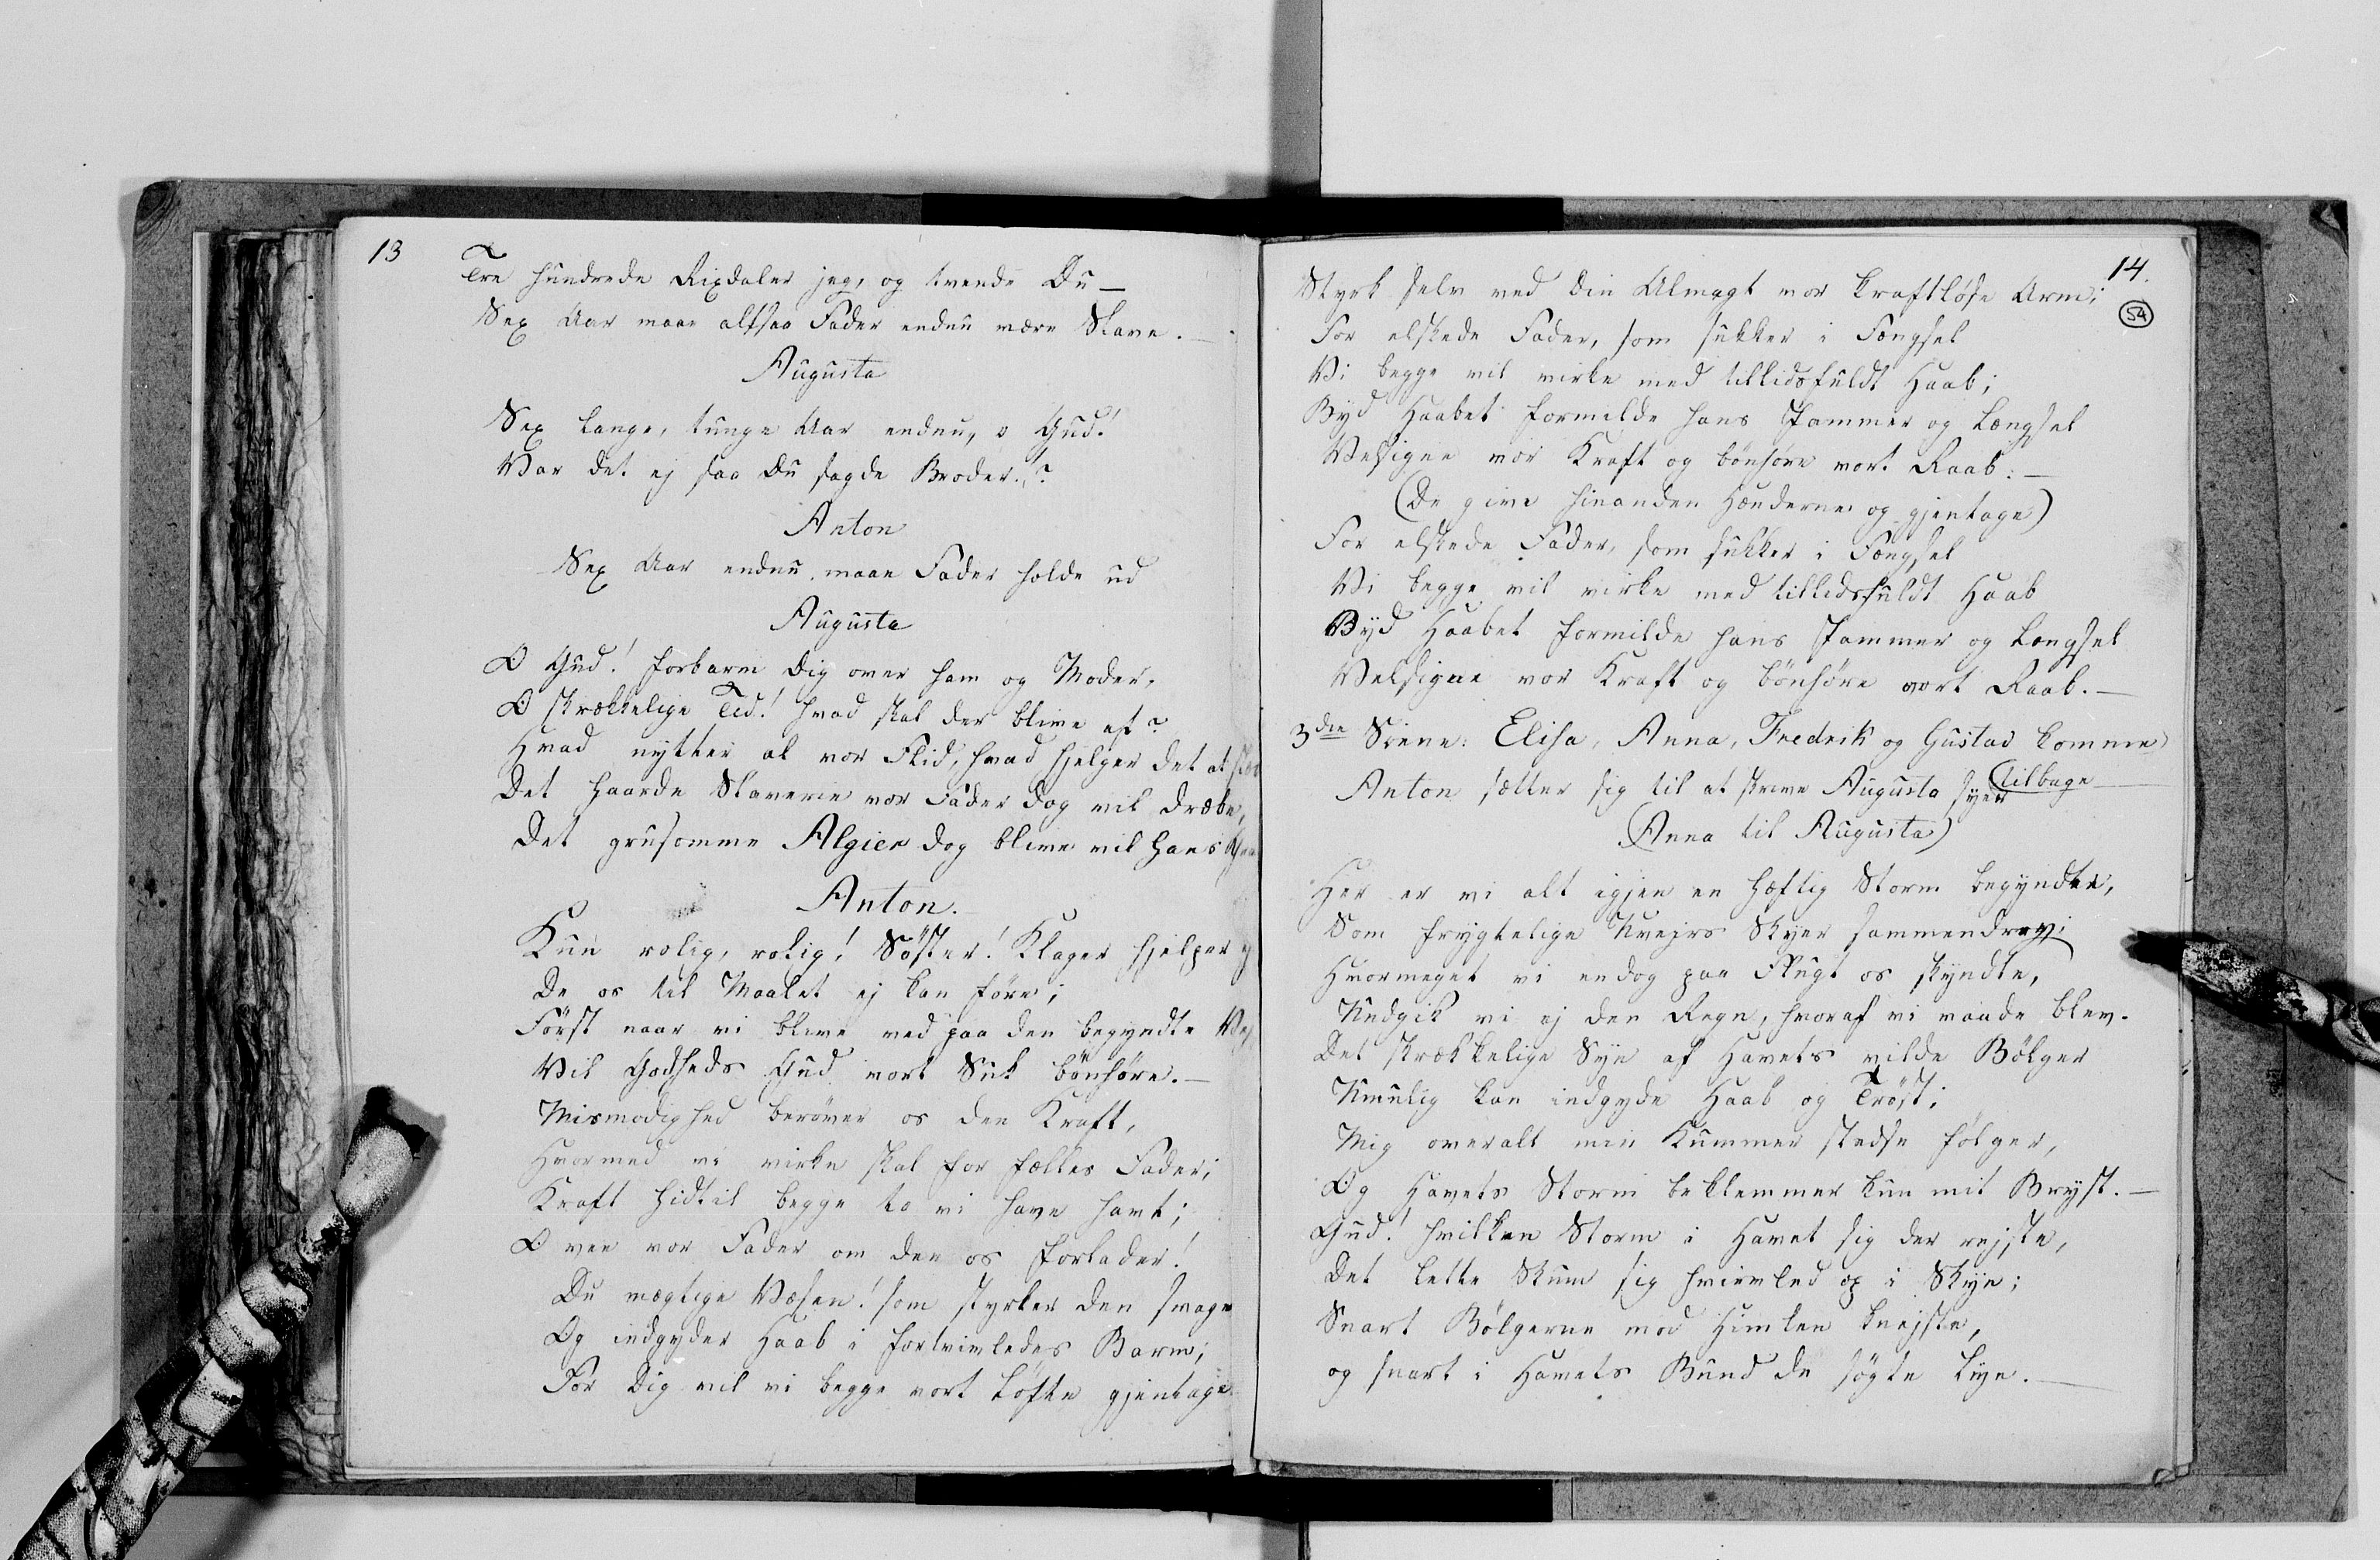 13
Tre hundrede Rixdaler jeg, og tvende Du —
Sex Aar maae altsaa Fader endnu være Slave. —
Augusta
Sex lange, tunge Aar endnu, o Gud!
Var det ej saa Du sagde Broder!?
Anton
Sex Aar endnu maae Fader holde ud
Augusta
O Gud! forbarm Dig over ham og Moder,
O skrækkelige Tid! hvad skal der blive af?
Hvad nytter al vor Flid, hvad hjelper det at
Det haarde Slaverie vor Fader dog vil dræbe,
Det grusomme Algier dog blive vil hans
Anton.
Kun rolig, rolig! Söster! Klager hjelper ej
De os til Maalet ej kan före;
Först naar vi blive ved paa den begyndte Vej,
Vil Godheds Gud vort Suk bönhöre. —
Mismodighed beröver os den Kraft,
Hvormed vi virke skal for fælles Fader;
Kraft hidtil begge to vi have havt;
O vee vor Fader om den os forlader!
Du mægtige Væsen! som styrker den svage
Og indgyder Haab i fortvivledes Barm;
For Dig vil vi begge vort Löfte gjentage
14.
54
Styrk selv ved din Almagt vor kraftlöse Arm;
For elskede Fader, som sukker i Fængsel
Vi begge vil virke med tillidsfuldt Haab;
Byd Haabet formilde hans Jammer og Længsel
Velsigne vor Kraft og bönhöre vort Raab. —
(De give hinanden Hænderne og gjentage)
For elskede Fader, som sukker i Fængsel
Vi begge vil virke med tillidsfuldt Haab
Byd Haabet formilde hans Jammer og Længsel
Velsigne vor Kraft og bönhöre vort Raab. —
3die Scene: Elisa, Anna, Fredrik og Gustav komme
Anton sætter sig til at skrive Augusta syer (tilbage —
(Anna til Augusta)
Her er vi alt igjen en hæftig Storm begyndte,
Som frygtelige Uvejrs Skyer sammendrev;
Hvormeget vi endog paa Flugt os skyndte,
Undgik vi ej den Regn, hvoraf vi vaade blev.
Det skrækkelige Syn af Havets vilde Bölger
Umulig kan indgyde Haab og Tröst;
Mig overalt min Kummer stedse fölger,
Og Havets Storm beklemmer kun mit Bryst. —
Gud! hvilken Storm i Havet sig der rejste,
Det lette Skum sig hvirvled op i Skye;
Snart Bölgerne mod Himlen knejste,
og snart i Havets Bund de sögte Lye. —